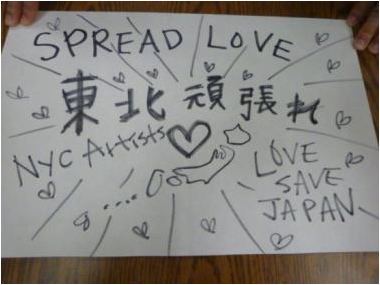 SPREAD LOVE
東北頑張れ
NYC Artists
LOVE
SAVE
JAPAN